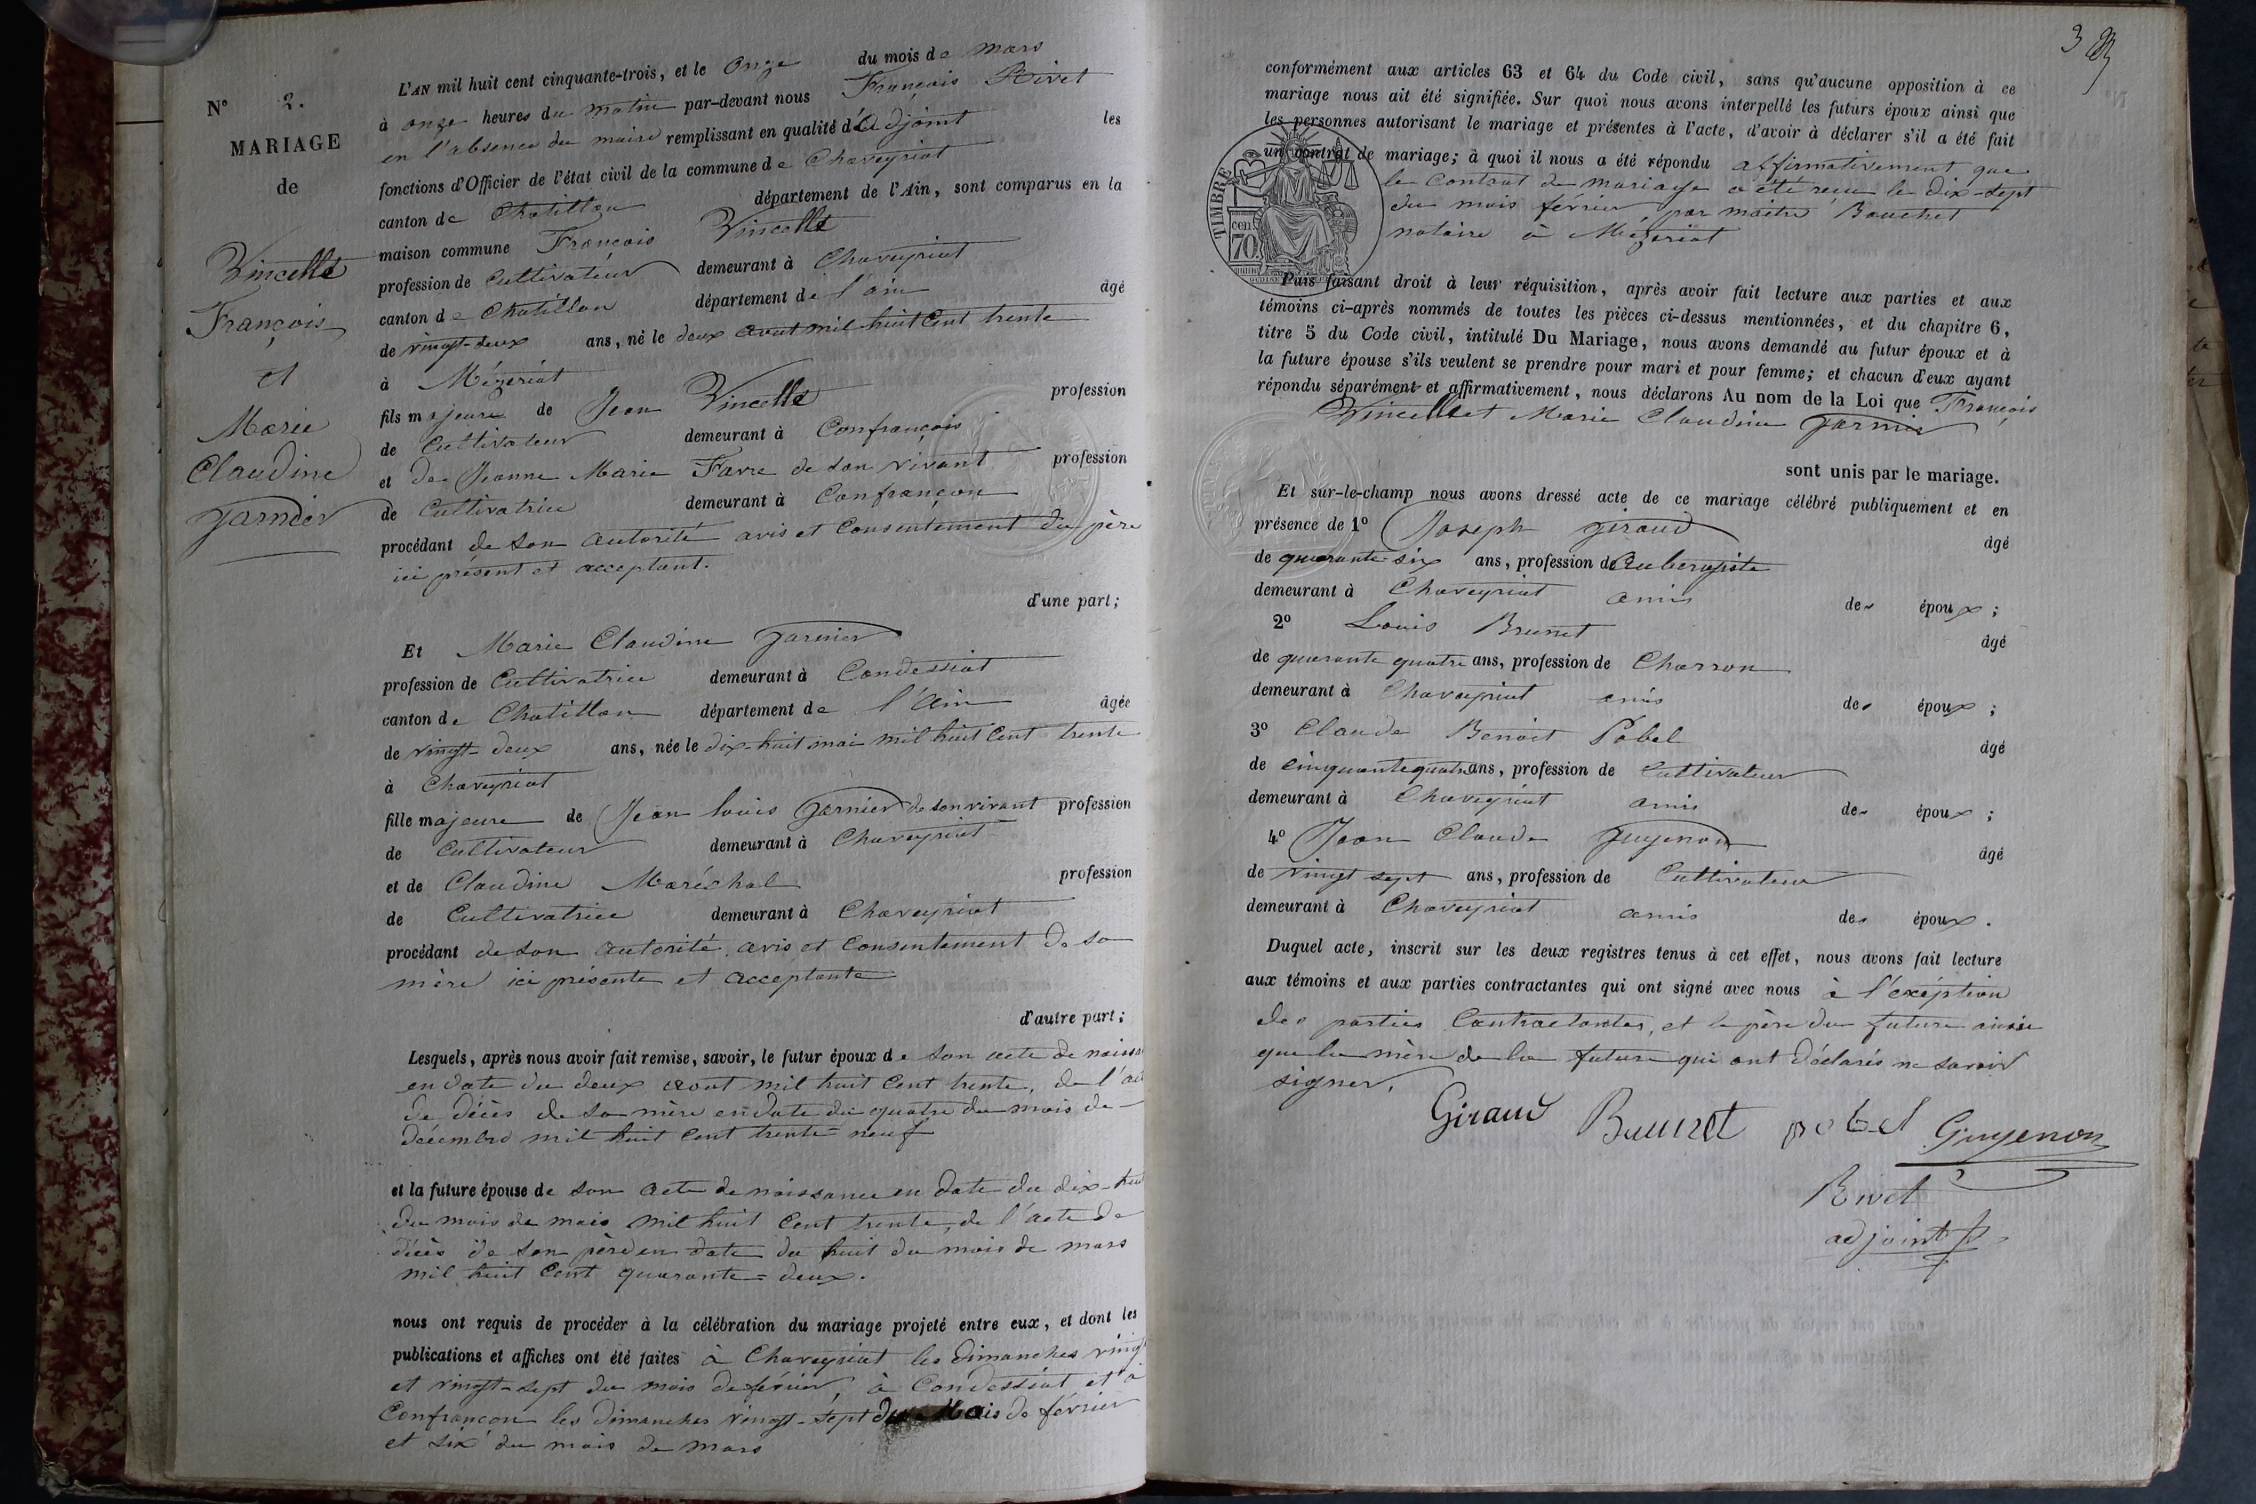 N° 2.
MARIAGE
de
Vincellet
François
et
Marie
Claudine
Garnier
L'AN mil huit cent cinquante-trois, et le Onze du mois de mars
à onze heures du matin par-devant nous François Rivet
en l'absence du maire remplissant en qualité d'Adjoint les
fonctions d'Officier de l'état civil de la commune de Chaveyriat
canton de Chatillon département de l'Ain, sont comparus en la
maison commune François Vincellet
profession de Cultivateur demeurant à Chaveyriat
canton de Chatillon département de l'ain âgé
de vingt-deux ans, né le deux aout mil huit Cent trente
à Mézeriat
fils majeure de Jean Vincellet profession
de Cultivateur demeurant à Confrançois
et de Jeanne Marie Favre de son vivant profession
de Cultivatrice demeurant à Confrançon
procédant de son autorité avis et Consentement du père
ici présent et acceptant.
d'une part;
Et Marie Claudine Garnier
profession de Cultivatrice demeurant à Condessiat
canton de Chatillon département de l'Ain âgée
de vingt-deux ans, née le dix-huit mai mil huit Cent trente
à Chaveyriat
fille majeure de Jean louis Garnier de son vivant profession
de Cultivateur demeurant à Chaveyriat
et de Claudine Maréchal profession
de Cultivatrice demeurant à Chaveyriat
procédant de son autorité avis et Consentement de sa
mère ici présente et acceptante
d'autre part;
Lesquels, après nous avoir fait remise, savoir, le futur époux de son acte de naissa
en date du deux aout mil huit Cent trente, de l'ac
de décès de sa mère en date du quatre du mois de
décembre mil huit Cent trente-neuf
et la future épouse de son acte de naissance en date du dix-hui
du mois de mais mil huit Cent trente, de l'acte de
décès de son père en date du huit du mois de mars
mil huit Cent quarante-deux.
nous ont requis de procéder à la célébration du mariage projeté entre eux, et dont les
publications et affiches ont été faites à Chaveyriat les dimanches ving
et vingt-sept du mois de février, à Condessiat et à
Confrançon les dimanches vingt-sept du Mois de février
et six du mois de mars
3
conformément aux articles 63 et 64 du Code civil, sans qu'aucune opposition à ce
mariage nous ait été signifiée. Sur quoi nous avons interpellé les futurs époux ainsi que
les personnes autorisant le mariage et présentes à l'acte, d'avoir à déclarer s'il a été fait
un contrat de mariage; à quoi il nous a été répondu affirmativement que
le Contrat de mariage a été reçu le dix-sept
du mois février par maitre Bouchet
notaire à Mézeriat
TIMBRE
cen
70.
Puis faisant droit à leur réquisition, après avoir fait lecture aux parties et aux
témoins ci-après nommés de toutes les pièces ci-dessus mentionnées, et du chapitre 6,
titre 5 du Code civil, intitulé Du Mariage, nous avons demandé au futur époux et à
la future épouse s'ils veulent se prendre pour mari et pour femme; et chacun d'eux ayant
répondu séparément et affirmativement, nous déclarons Au nom de la Loi que François
Vincellet et Marie Claudine Garnier
sont unis par le mariage.
Et sur-le-champ nous avons dressé acte de ce mariage célébré publiquement et en
présence de 1° Joseph Giraud âgé
de quarante-six ans, profession de Aubergiste
demeurant à Chaveyriat amis des époux;
2° Louis Brunet âgé
de quarante quatre ans, profession de Charron
demeurant à Chaveyriat amis des époux;
3° Claude Benoit Pobel âgé
de cinquante quatre ans, profession de Cultivateur
demeurant à Chaveyriat amis des époux;
4° Jean Claude Guyenon âgé
de vingt sept ans, profession de Cultivateur
demeurant à Chaveyriat amis des époux.
Duquel acte, inscrit sur les deux registres tenus à cet effet, nous avons fait lecture
aux témoins et aux parties contractantes qui ont signé avec nous à l'exéption
des parties Contractantes, et le père du future ainsie
que la mère de la future qui ont déclarés ne savoir
signer.
Giraud Brunet pobel Guyenon
Rivet
adjoint